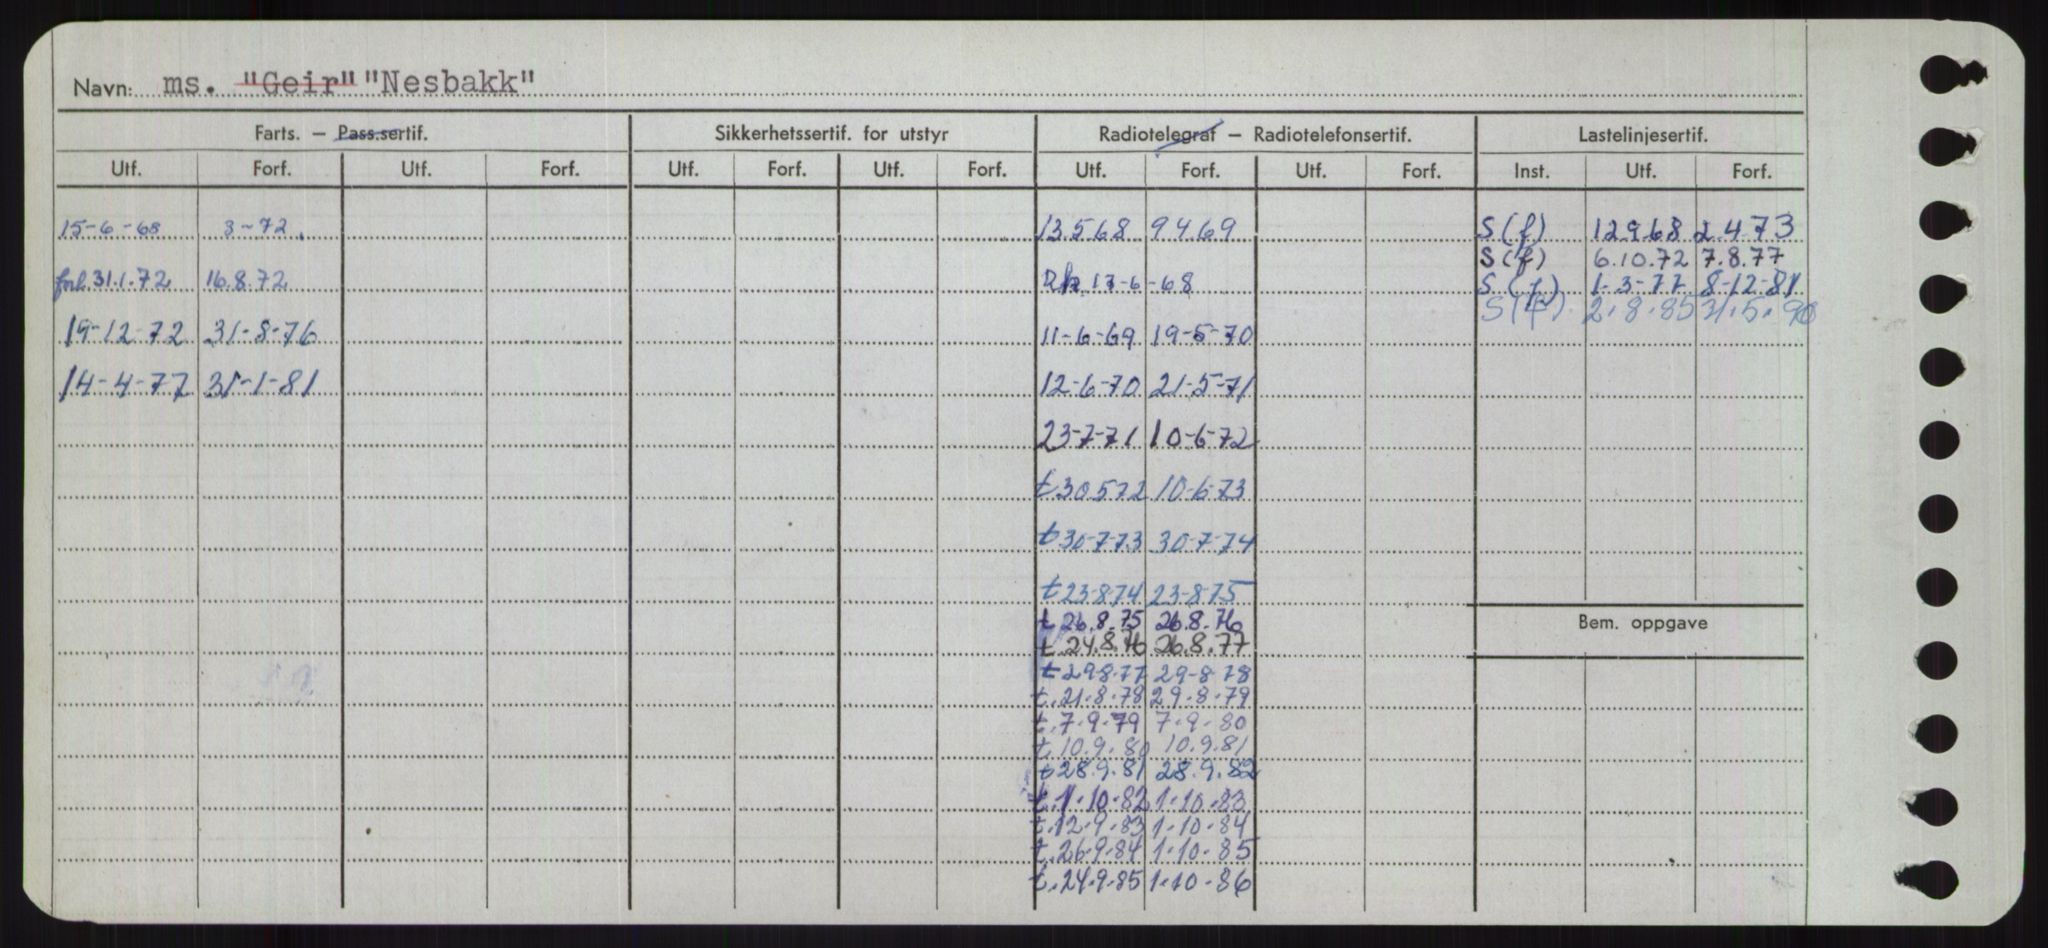 Navn: ms. "Geir" "Nesbakk"
Farts. – Pass.sertif. Sikkerhetssertif. for utstyr Radiotelegraf – Radiotelefonsertif. Lastelinjesertif.
Utf. Forf. Utf. Forf. Utf. Forf. Utf. Forf. Utf. Forf. Utf. Forf. Inst. Utf. Forf.
15-6-68 3-72. 13.568 9469 S(f) 12968 2.473
S(f) 6.10.72 7.8.77
forl. 31.1.72 16.8.72 17-6-68 S(f) 1-3-77 8-12-81
S(f) 2.8.85 31.5.90
19-12-72 31-8-76 11-6-69 19-5-70
14-4-77 31-1-81 12-6-70 21-5-71
23-7-71 10-6-72
t 30572 10-6-73
t 30-7-73 30-7-74
t 23-8-74 23-8-75
t 26.8.75 26.8.76
Bem. oppgave
t 24.8.76 26.8.77
t 29-8-77 29-8-78
t. 21.8.78 29.8.79
t. 7.9.79 7.9.80
t. 10.9.80 10.9.81
t 28.9.81 28.9.82
t. 1.10.82 1.10.83
t. 12.9.83 1.10.84
t. 26.9.84 1.10.85
t. 24.9.85 1.10.86